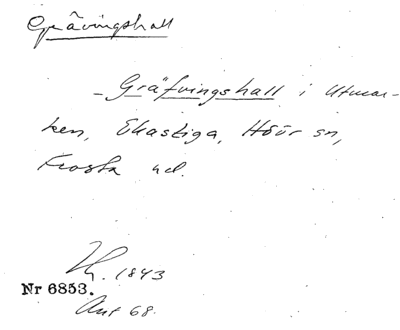 Grävingshall
– Gräfvingshall i Utmar-
ken, Ekastiga, Höör sn,
Frosta hd.
1843
Nr 6853.
Ant 68.